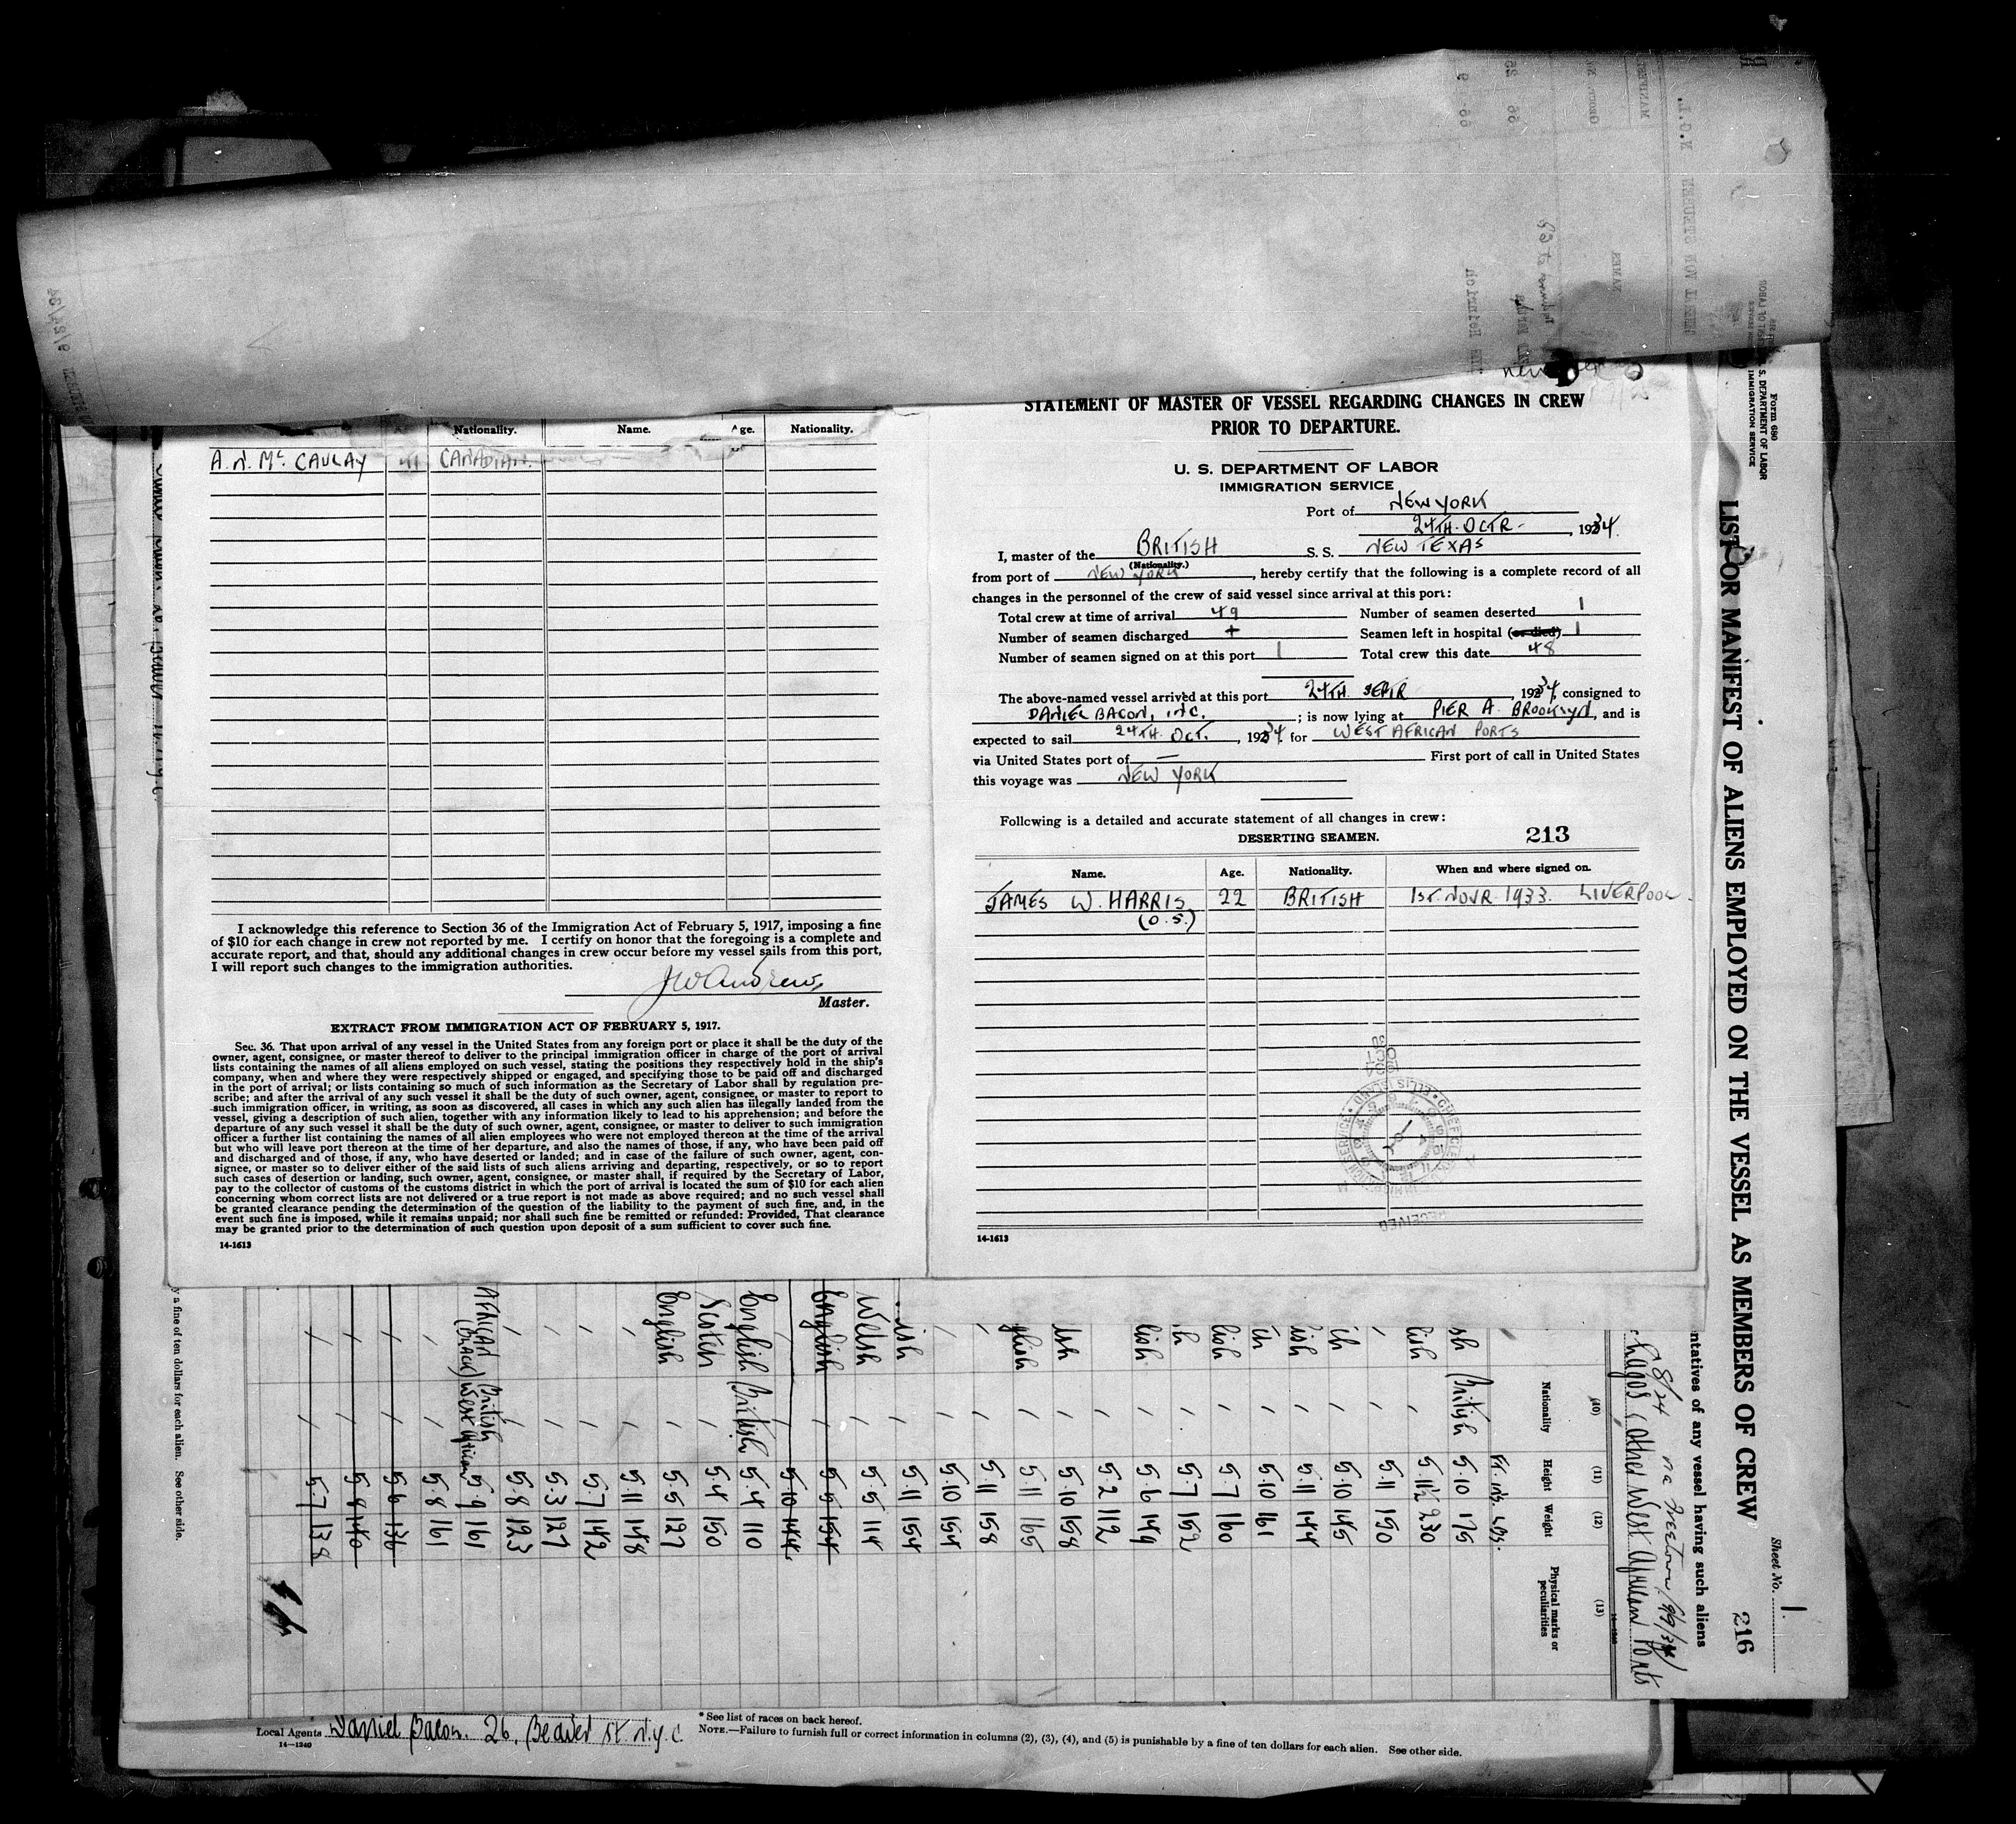 Nationality. Name. Age. Nationality.
A. N. Mc. CAULAY 41 CANADIAN.
I acknowledge this reference to Section 36 of the Immigration Act of February 5, 1917, imposing a fine
of $10 for each change in crew not reported by me. I certify on honor that the foregoing is a complete and
accurate report, and that, should any additional changes in crew occur before my vessel sails from this port,
I will report such changes to the immigration authorities.
JW Andrews
Master.
EXTRACT FROM IMMIGRATION ACT OF FEBRUARY 5, 1917.
Sec. 36. That upon arrival of any vessel in the United States from any foreign port or place it shall be the duty of the
owner, agent, consignee, or master thereof to deliver to the principal immigration officer in charge of the port of arrival
lists containing the names of all aliens employed on such vessel, stating the positions they respectively hold in the ship's
company, when and where they were respectively shipped or engaged, and specifying those to be paid off and discharged
in the port of arrival; or lists containing so much of such information as the Secretary of Labor shall by regulation pre-
scribe; and after the arrival of any such vessel it shall be the duty of such owner, agent, consignee, or master to report to
such immigration officer, in writing, as soon as discovered, all cases in which any such alien has illegally landed from the
vessel, giving a description of such alien, together with any information likely to lead to his apprehension; and before the
departure of any such vessel it shall be the duty of such owner, agent, consignee, or master to deliver to such immigration
officer a further list containing the names of all alien employees who were not employed thereon at the time of the arrival
but who will leave port thereon at the time of her departure, and also the names of those, if any, who have been paid off
and discharged and of those, if any, who have deserted or landed; and in case of the failure of such owner, agent, con-
signee, or master so to deliver either of the said lists of such aliens arriving and departing, respectively, or so to report
such cases of desertion or landing, such owner, agent, consignee, or master shall, if required by the Secretary of Labor,
pay to the collector of customs of the customs district in which the port of arrival is located the sum of $10 for each alien
concerning whom correct lists are not delivered or a true report is not made as above required; and no such vessel shall
be granted clearance pending the determination of the question of the liability to the payment of such fine, and, in the
event such fine is imposed, while it remains unpaid; nor shall such fine be remitted or refunded: Provided, That clearance
may be granted prior to the determination of such question upon deposit of a sum sufficient to cover such fine.
14-1613
STATEMENT OF MASTER OF VESSEL REGARDING CHANGES IN CREW
PRIOR TO DEPARTURE.
U. S. DEPARTMENT OF LABOR
IMMIGRATION SERVICE
Port of NEW YORK
24TH. OCTR. , 1934.
I, master of the BRITISH S. S. NEW TEXAS
(Nationality.)
from port of NEW YORK , hereby certify that the following is a complete record of all
changes in the personnel of the crew of said vessel since arrival at this port:
Total crew at time of arrival 49 Number of seamen deserted 1
Number of seamen discharged + Seamen left in hospital (or died) 1
Number of seamen signed on at this port 1 Total crew this date 48
The above-named vessel arrived at this port 24TH. SEPTR , 1934, consigned to
DANIEL BACON, INC. ; is now lying at PIER A. BROOKLYN, and is
expected to sail 24TH. OCT. , 1934 for WEST AFRICAN PORTS
via United States port of — First port of call in United States
this voyage was NEW YORK
Following is a detailed and accurate statement of all changes in crew:
DESERTING SEAMEN. 213
Name. Age. Nationality. When and where signed on.
JAMES W. HARRIS 22 BRITISH 1ST. NOVR. 1933. LIVERPOOL.
(O.S.)
RECEIVED
14-1613
Form 680
U. S. DEPARTMENT OF LABOR
IMMIGRATION SERVICE
LIST OR MANIFEST OF ALIENS EMPLOYED ON THE VESSEL AS MEMBERS OF CREW
Sheet No. 1.
216
ntatives of any vessel having such aliens
Lagos (other West African Ports
(10) (11) (12) (13)
Nationality Height Weight Physical marks or peculiarities
Ft. ins. Lbs.
British 5.10 175
5.11½ 230
5.11 150
5.10 145
5.11 144
5.10 161
5.7 160
5.7 152
5.6 149
5.2 112
5.10 158
5.11 165
5.11 158
5.10 154
5.11 154
Welsh 5.5 114
English 5.5 154
5.10 144
English British 5.4 110
Scotch 5.4 150
English 5.5 127
5.11 148
5.7 142
5.3 127
5.8 123
AFRICAN (BLACK) British West African 5.9 161
5.8 161
5.6 136
5.8 140
5.7 138
y a fine of ten dollars for each alien. See other side.
* See list of races on back hereof.
Local Agents Daniel Bacon. 26, Beaver St. N.Y.C
14—1240
NOTE.—Failure to furnish full or correct information in columns (2), (3), (4), and (5) is punishable by a fine of ten dollars for each alien. See other side.